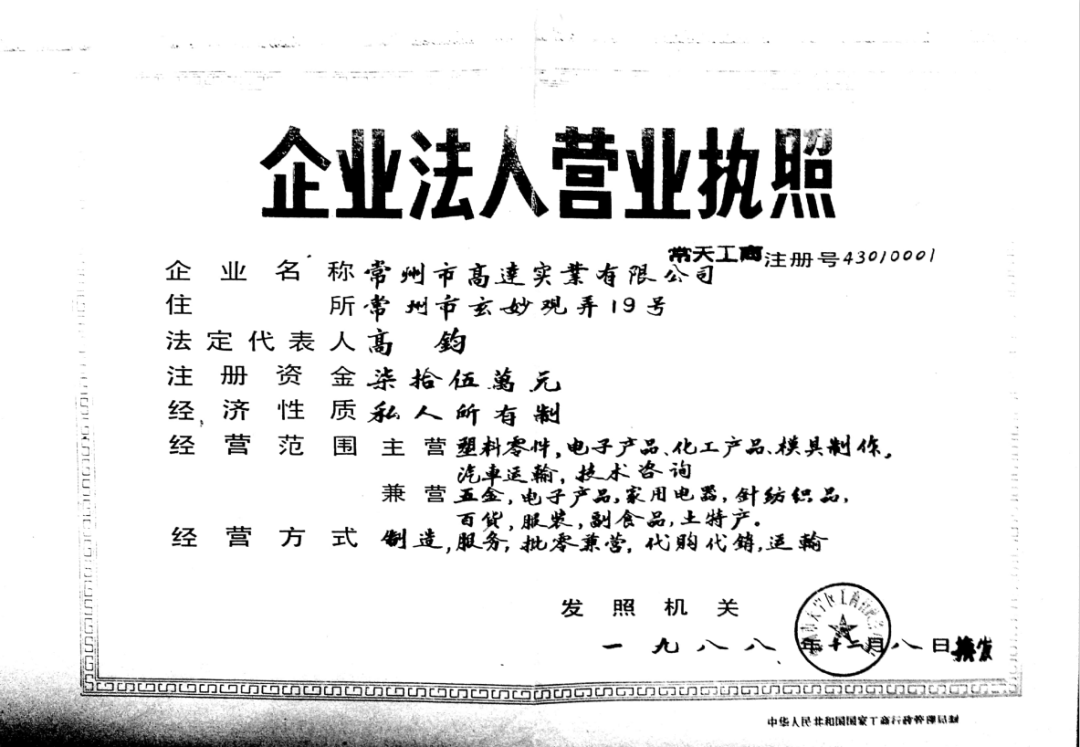 企业法人营业执照
常天工商 注册号43010001
企业名称 常州市高達实業有限公司
住所 常州市玄妙观弄19号
法定代表人 高鈞
注册资金 柒拾伍萬元
经济性质 私人所有制
经营范围 主营 塑料零件,电子产品、化工产品、模具制作,
汽車运輸,技术咨询
兼营 五金,电子产品,家用电器,針紡织品,
百货,服装,副食品,土特产。
经营方式 制造,服务,批零兼营,代购代销,运輸
发照机关
一九八八年十二月八日换发
中华人民共和国国家工商行政管理局制